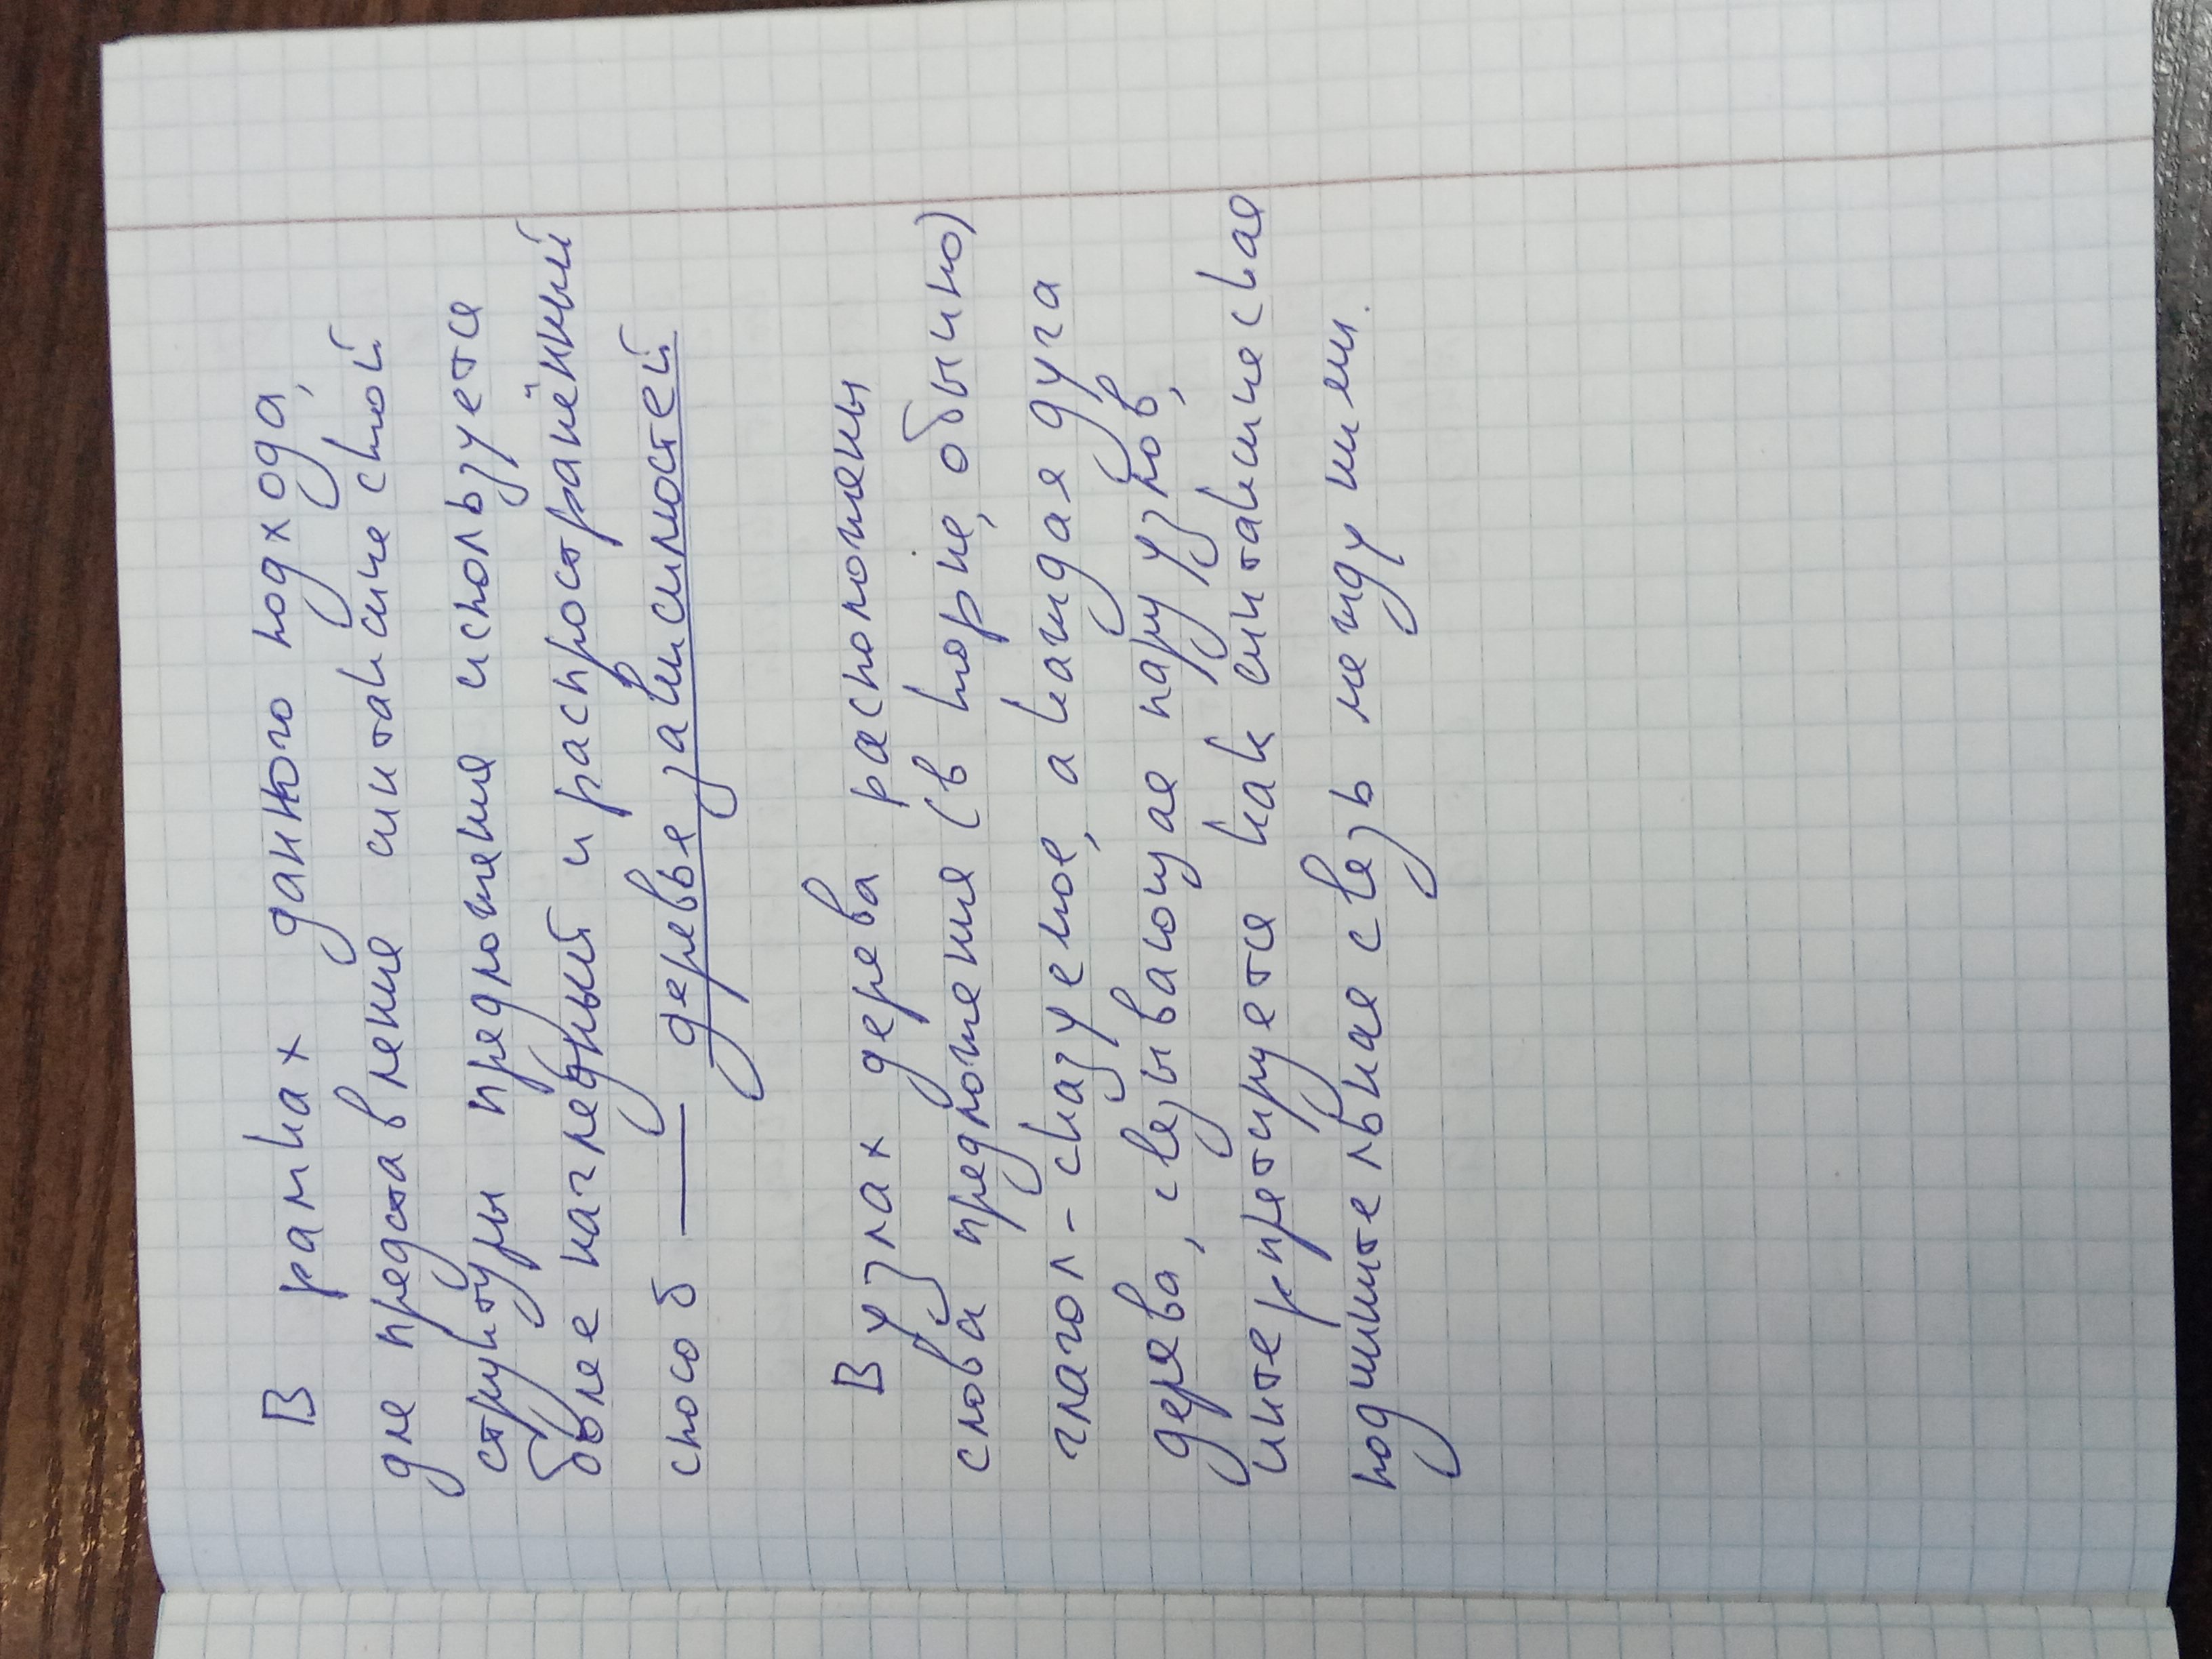 В рамках данного подхода,
для представления синтаксической
структуры предложения используется
более наглядный и распространённый
способ — деревья зависимостей
В узлах дерева расположены
слова предложения (в корне, обычно)
глагол-сказуемое, а каждая дуга
дерева, связывающая пару узлов,
интерпретируется как синтаксическая
подчинительная связь между ними.